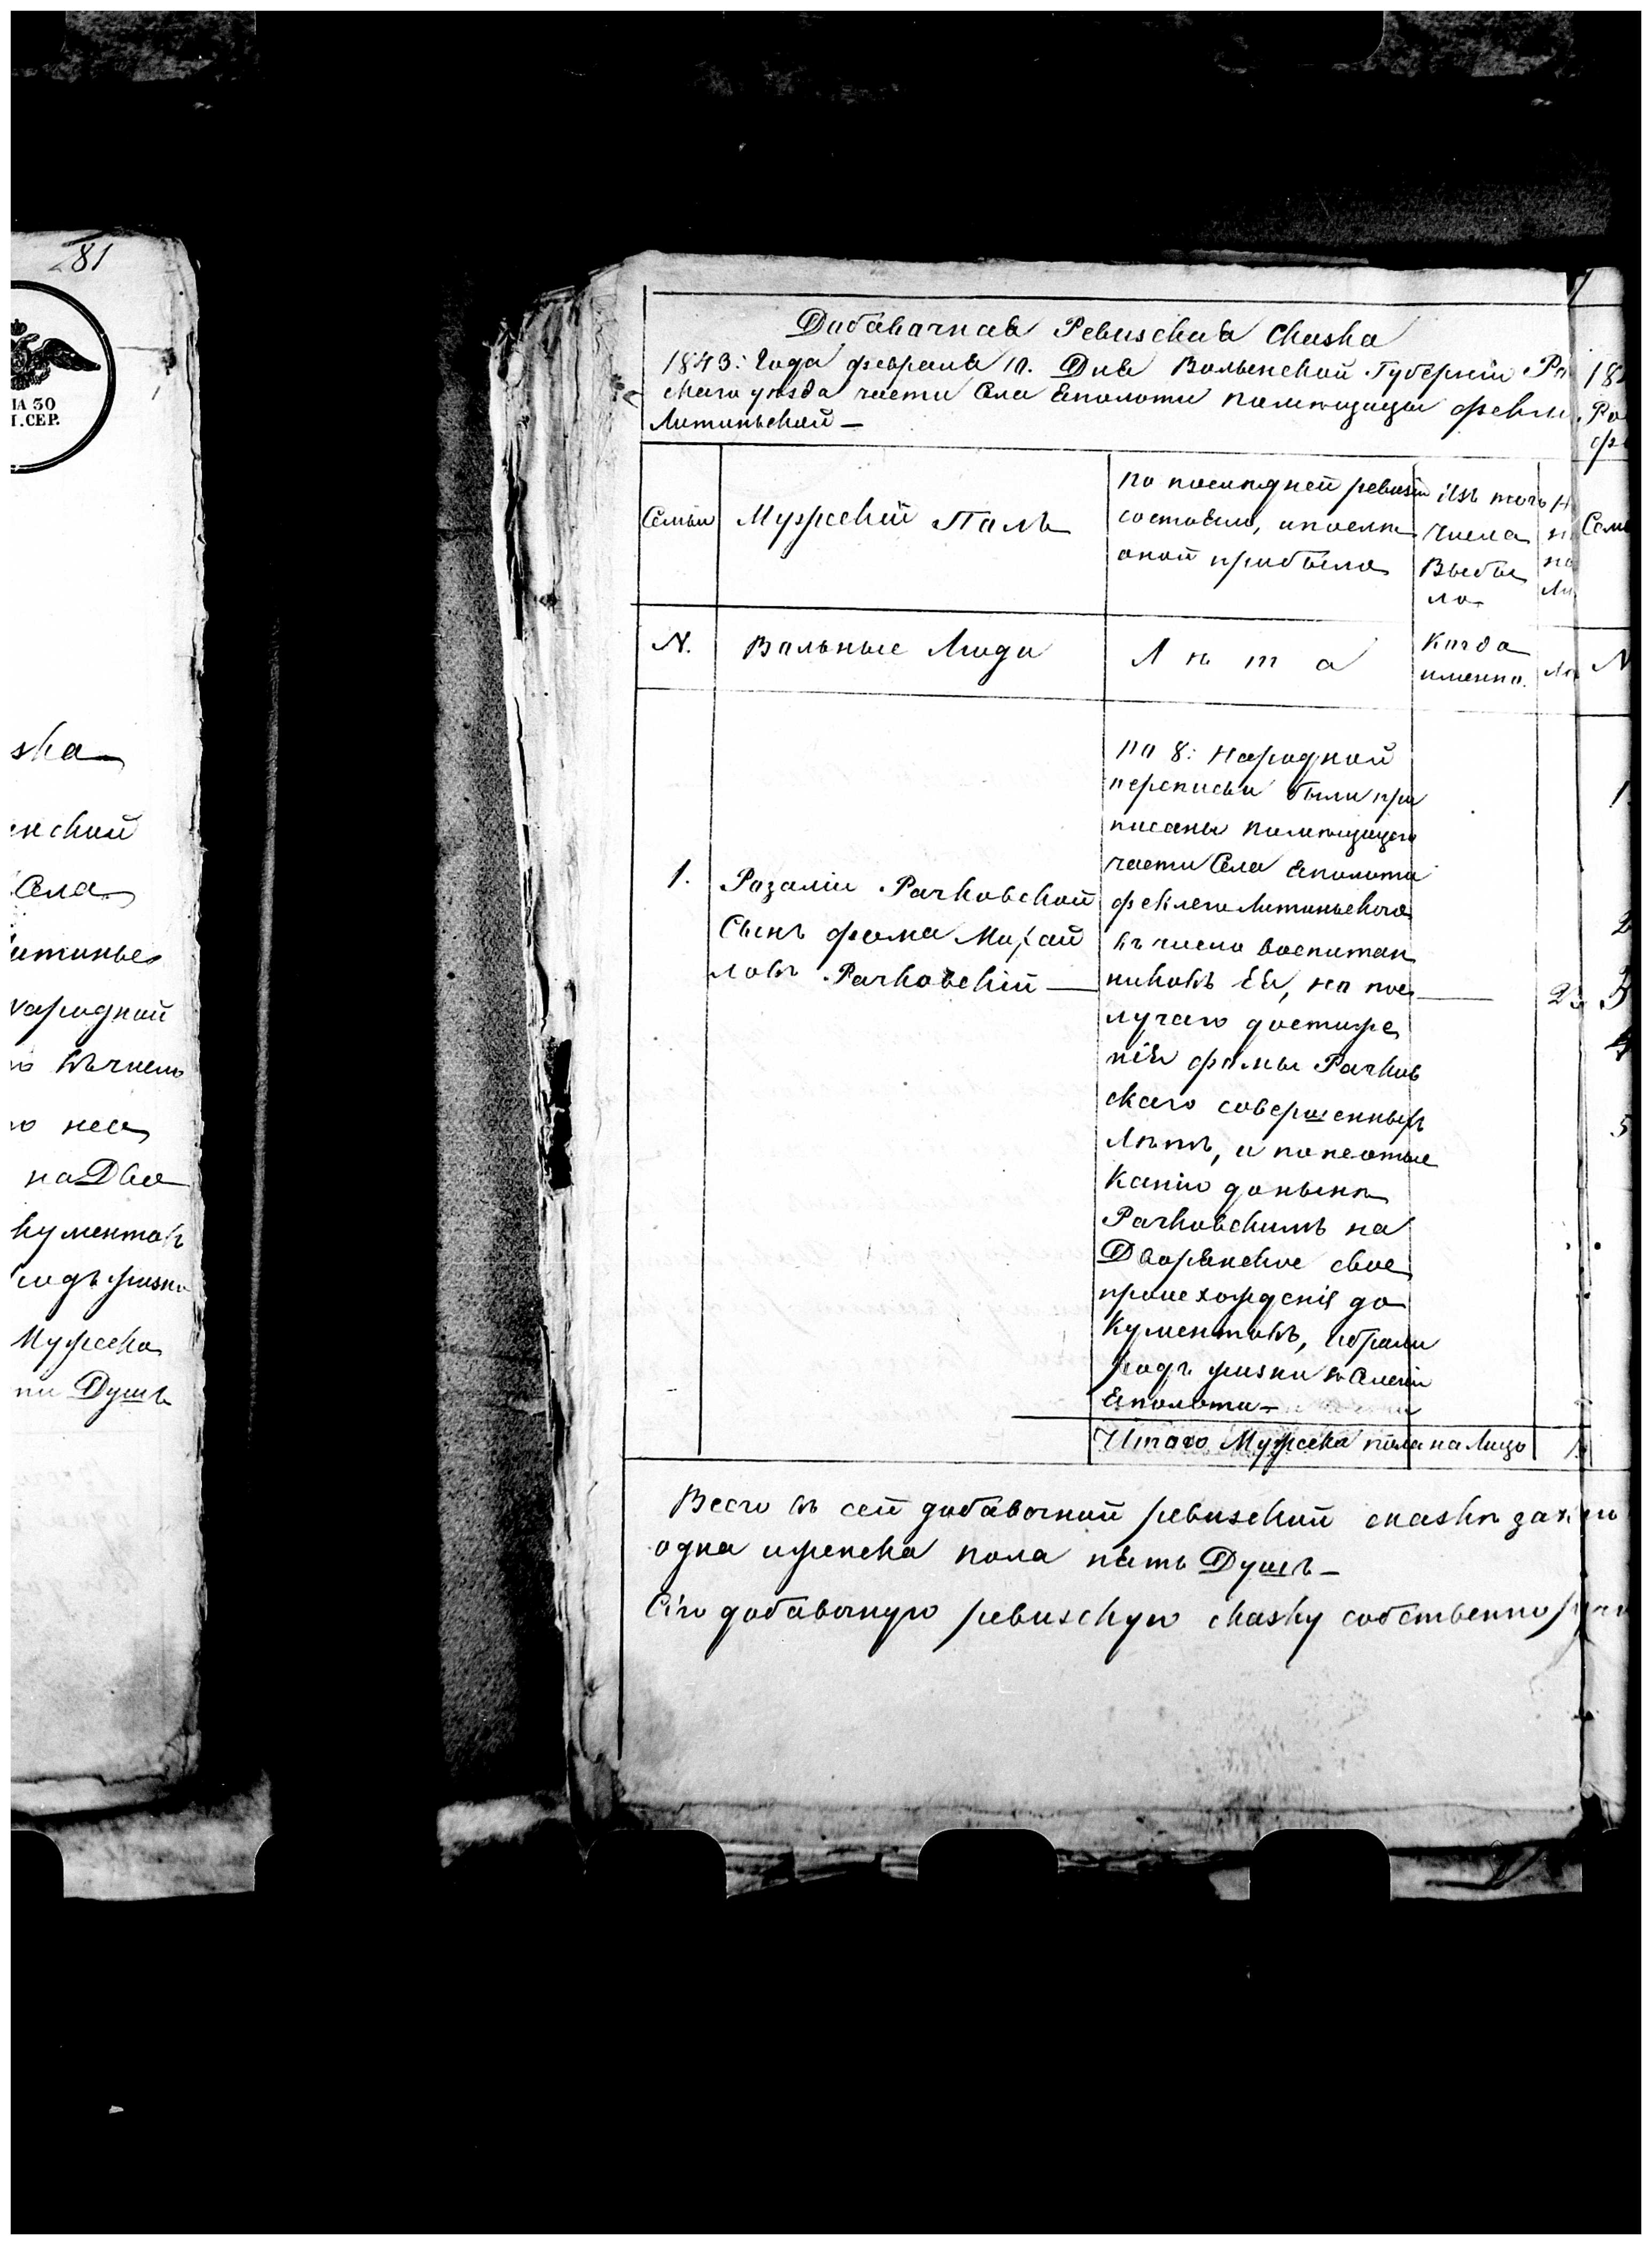 281
ПА 30
П. СЕР.
ска
енской
Села
итинье
народной
Вѣчнепо
на Дво
кументовъ
родъ жизни
Мужеска
Душъ
Добавачная Ревизская Сказка
1843: Года февраля 10. Дня Волынской Губерніи Ро
скаго уѣзда части Села Еполоти помѣщицы феклы
Литиньской —
Семьи
Мужескій Полъ
по последней ревизіи
состояло, и после
оной прибыло
Изъ того
числа
Выбы
ло
N.
Вольные Люди
Л ѣ т а
Когда
именно.
1.
Розаліи Рачковской
Сынъ фома Михай
ловъ Рачковскій —
по 8: Народной
переписи были при
писаны помѣщицею
части Села Еполоти
феклею Литиньскою
въ число воспитан
никовъ Ея, но по
лучаю достиже
нія фомы Рачков
скаго совершенныхъ
Лѣтъ, и по неотыс
канію донынѣ
Рачковскимъ на
Дворянское свое
происхожденія до
кументовъ, избрали
родъ жизни въ Селеніи
Еполоти —
Итого Мужеска пола на Лицо
1
Всего въ сей добавочной ревизской сказкѣ
одна и женска пола пять Душъ —
Сію добавочную ревизскую сказку собственно
18
Ро
Семь
N
1
2
3
4
5